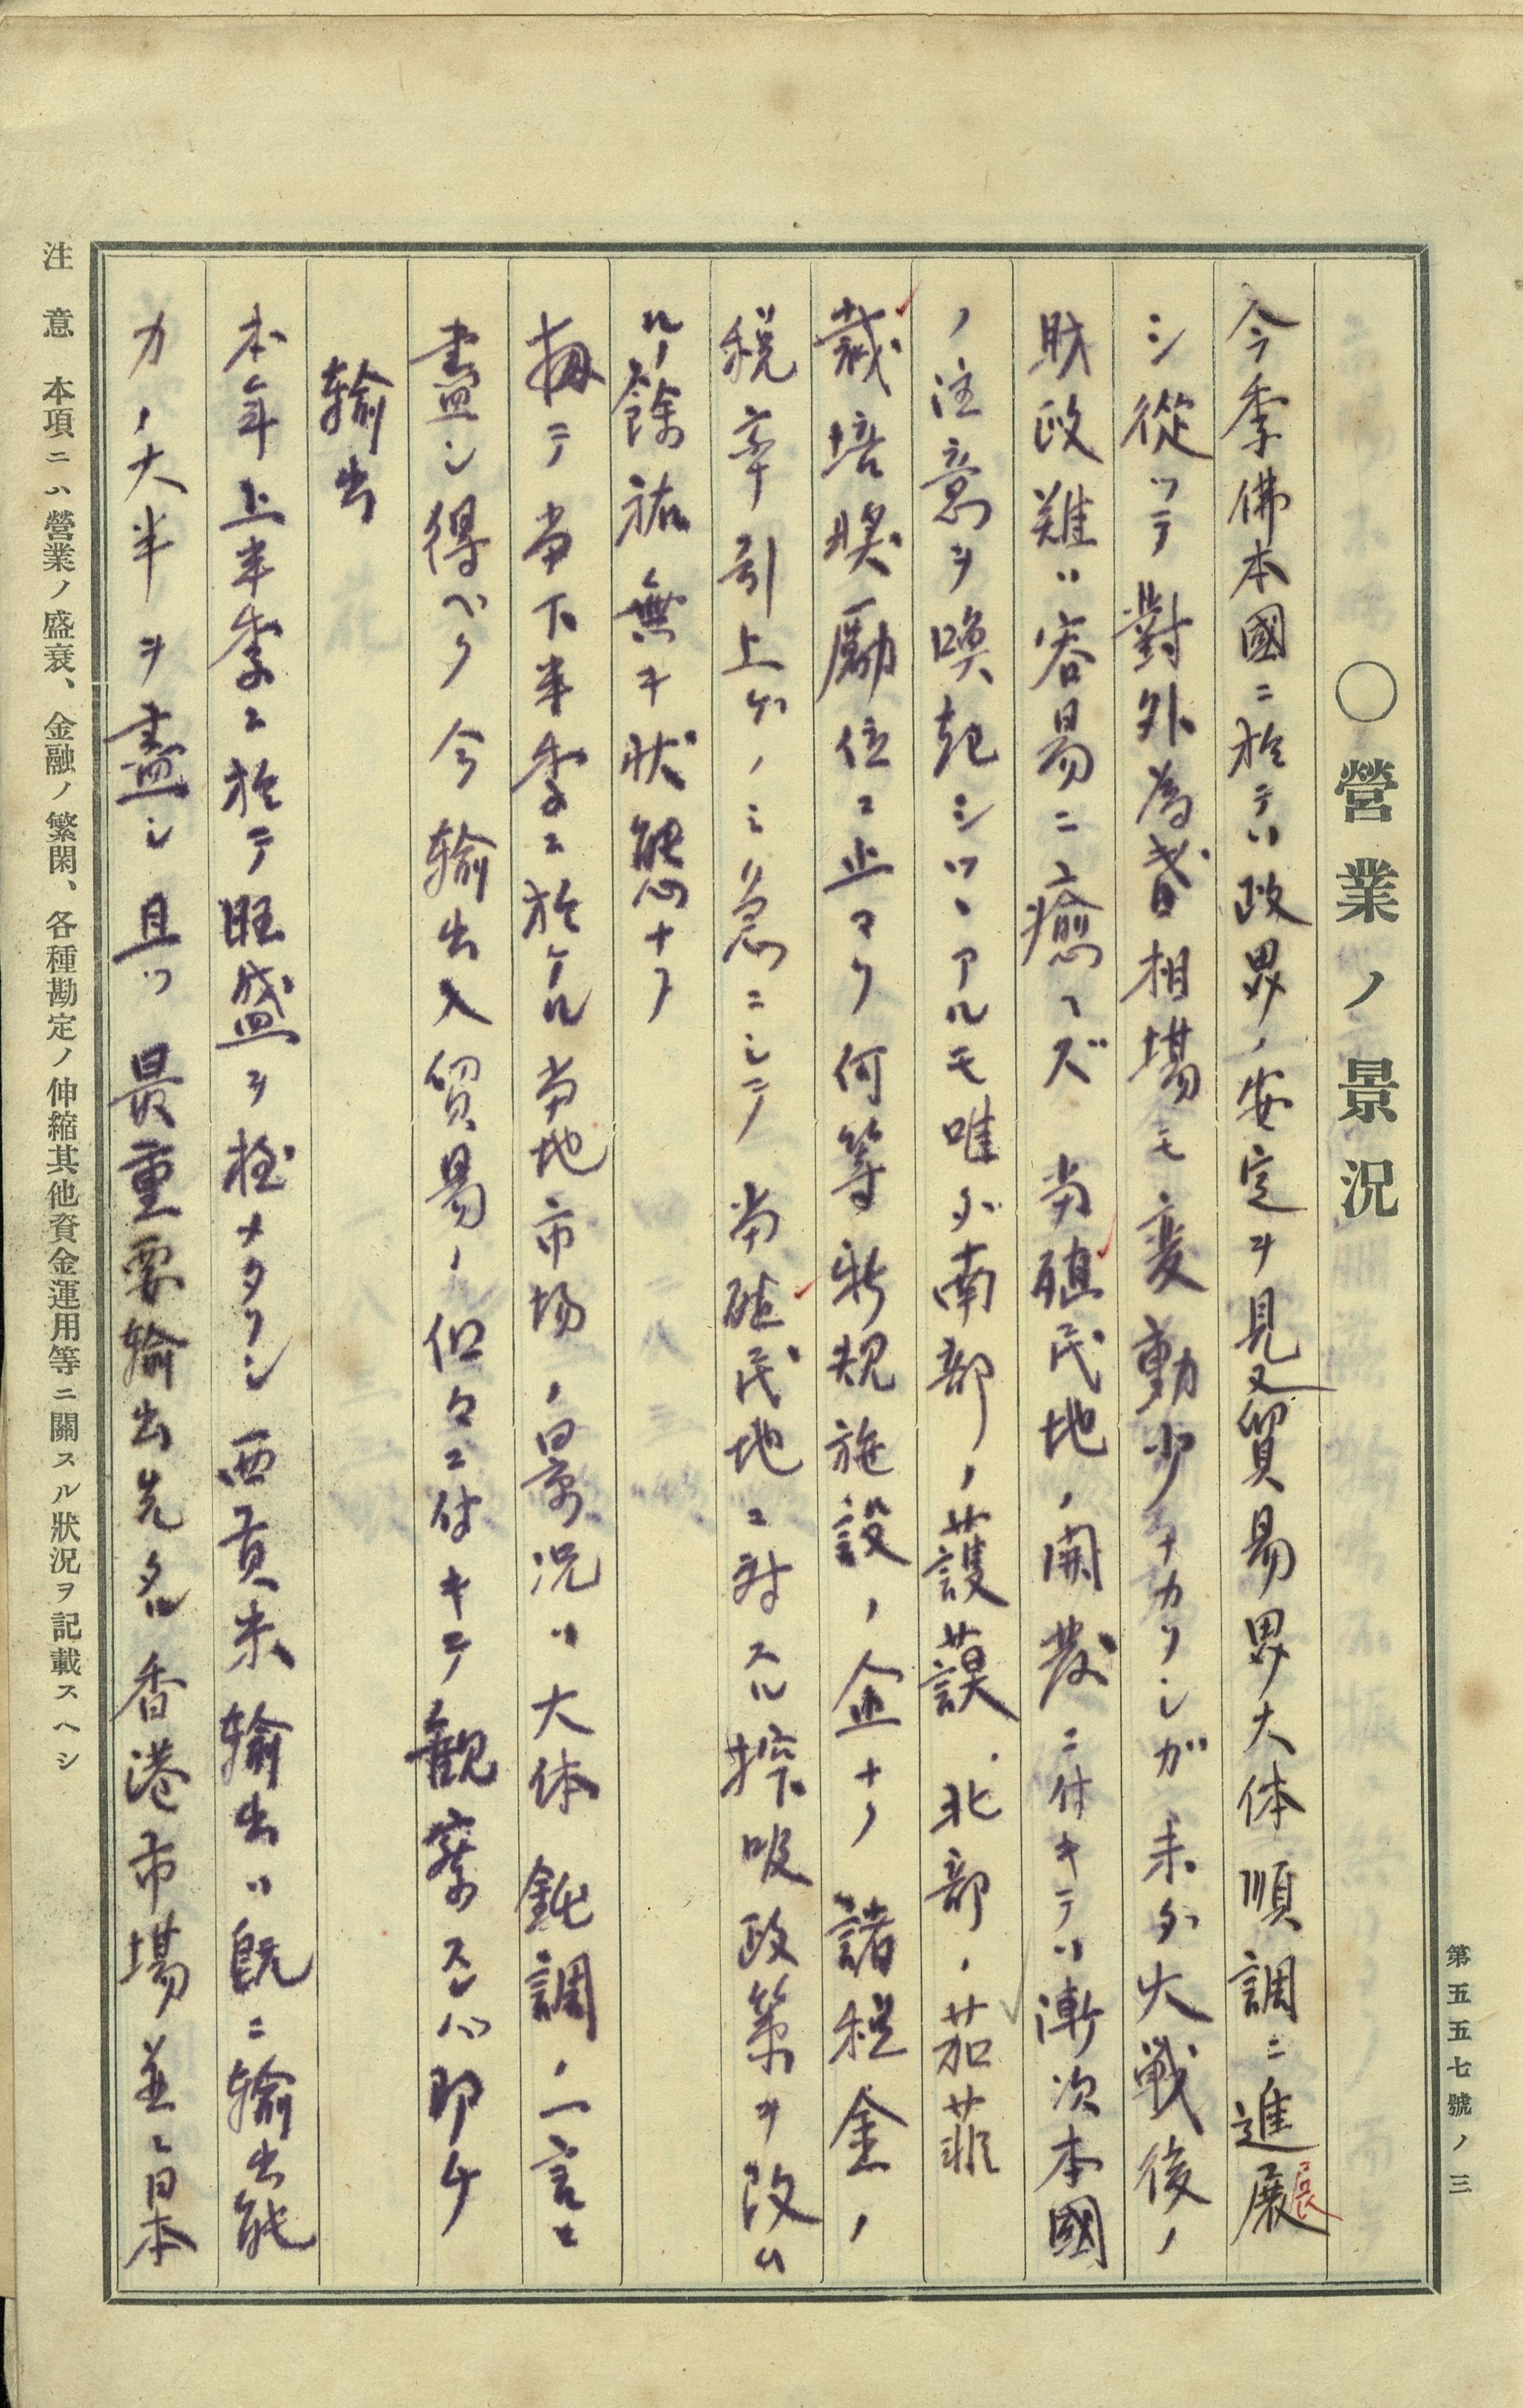 第五五七號ノ三
〇營業ノ景況
今季佛本國ニ於テハ政界ノ安定ヲ見又貿易界大体順調ニ進展
展
シ從ツテ對外為替相場モ変動少ナカリシガ未ダ大戦後ノ
財政難ハ容易ニ癒ヘズ 当殖民地ノ開発ニ付キテハ漸次本國
ノ注意ヲ喚起シツヽアルモ唯ダ南部ノ護謨、北部、茄菲
栽培奨励位ニ止マリ何等新規施設ノ企ナク 諸税金ノ
税率引上ゲノミ急ニシテ 当殖民地ニ対スル搾取政策ヲ改ム
ルノ餘裕無キ状態ナリ
擬テ当下半季ニ於ケル当地市場ノ景況ハ大体鈍調ノ一言ニ
盡シ得ベク 今輸出入貿易ノ個々ニ付キテ観察スレバ即チ
輸出
本年上半季ニ於テ旺盛ヲ極メタリシ 西貢米輸出ハ既ニ輸出能
力ノ大半ヲ盡シ 且ツ 最重要輸出先タル香港市場並ニ日本
注意 本項ニハ營業ノ盛衰、金融ノ繁閑、各種勘定ノ伸縮其他資金運用等ニ關スル狀況ヲ記載スヘシ